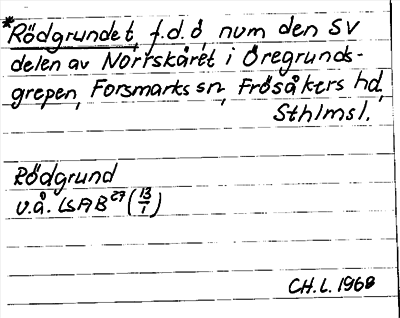 *Rödgrundet, f.d. ö, num den SV
delen av Norrskäret i Öregrunds-
grepen, Forsmarks sn, Frösåkers hd,
Sthlmsl.
Rödgrund
U.å. LSA B²⁷ (13/1)
CH.L. 1968